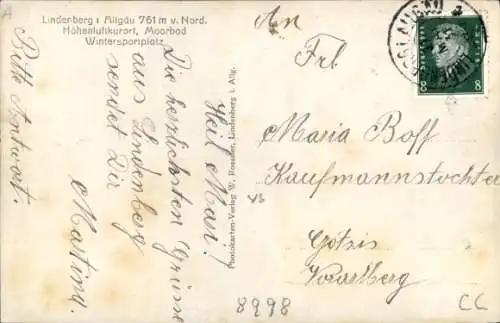 Lindenberg i Allgäu 761 m v. Nord.
Höhenluftkurort, Moorbad
Wintersportplatz
Heil Mari!
Die herzlichsten Grüsse
aus Lindenberg
sendet Dir
Martina.
Bitte Antwort.
Photokarten-Verlag W. Roessler, Lindenberg i. Allg.
An
Frl.
Maria Boff
Kaufmannstochter
Götzis
Vorarlberg
8
8
8998
CC